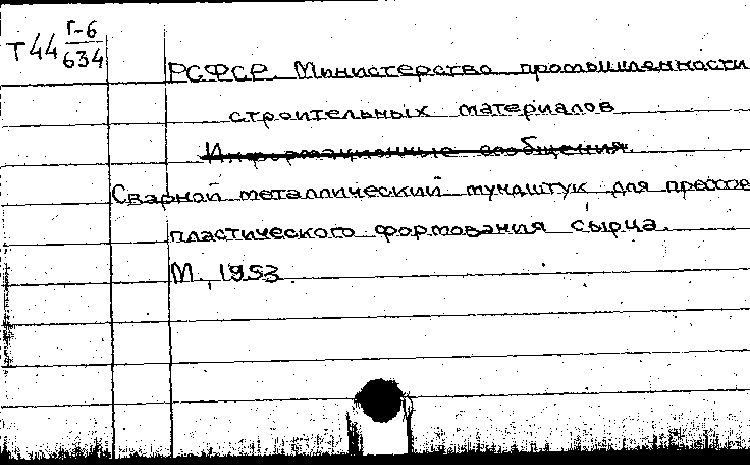 Т44 Г-6
634
РСФСР. Министерство промышленности
строительных материалов
Информационные сообщения.
Сварной металлический мундштук для прессов
пластического формования сырца.
М., 1953